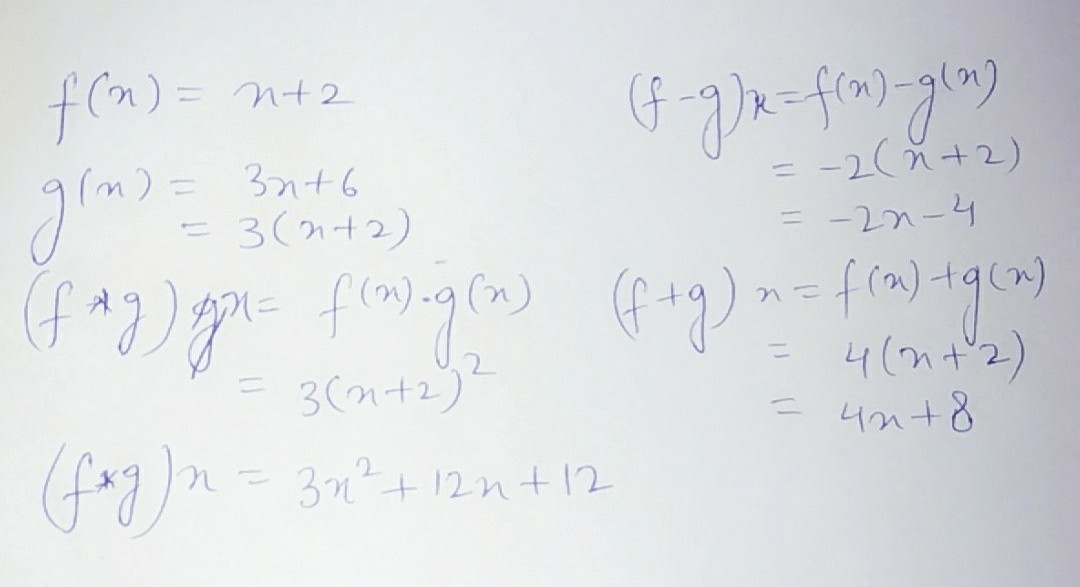 f(x) = x+2
g(x) = 3x+6
= 3(x+2)
(f*g)x = f(x).g(x)
= 3(x+2)²
(f*g)x = 3x²+12x+12
(f-g)x=f(x)-g(x)
= -2(x+2)
= -2x-4
(f+g) x = f(x)+g(x)
= 4(x+2)
= 4x+8